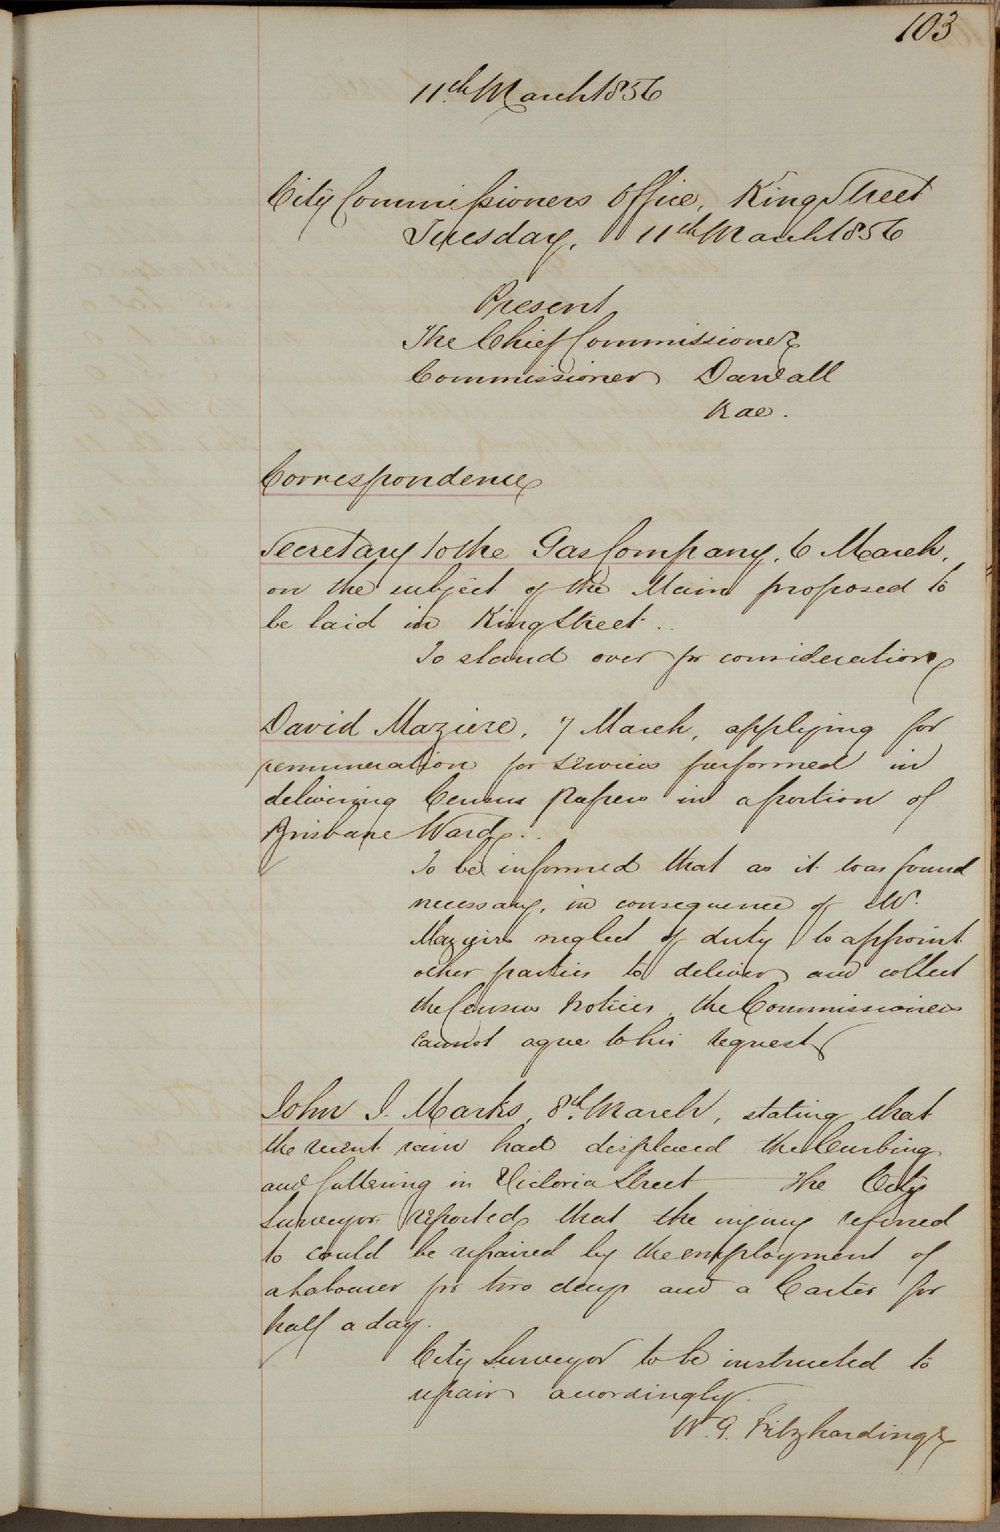 103
11th March 1856
City Commissioners Office, King Street
Tuesday, 11th March 1856
Present
The Chief Commissioner
Commissioner Darvall
Rae.
Correspondence
Secretary to the Gas Company, 6 March,
on the subject of the Main proposed to
be laid in King Street..
To stand over for consideration
David Maziere, 7 March, applying for
remuneration for services performed in
delivering Census Papers in a portion of
Brisbane Ward..
To be informed that as it was found
necessary, in consequence of Mr.
Mazieres neglect of duty, to appoint
other parties to deliver and collect
the Census Notices, the Commissioners
cannot agree to his request
John J. Marks, 8th March, stating that
the recent rain had desplaced the Curbing
and Guttering in Victoria Street — The City
Surveyor reported that the injury referred
to could be repaired by the employment of
a labourer for two days and a Carter for
half a day.
City Surveyor to be instructed to
repair accordingly.
W. G. Fitzhardinge